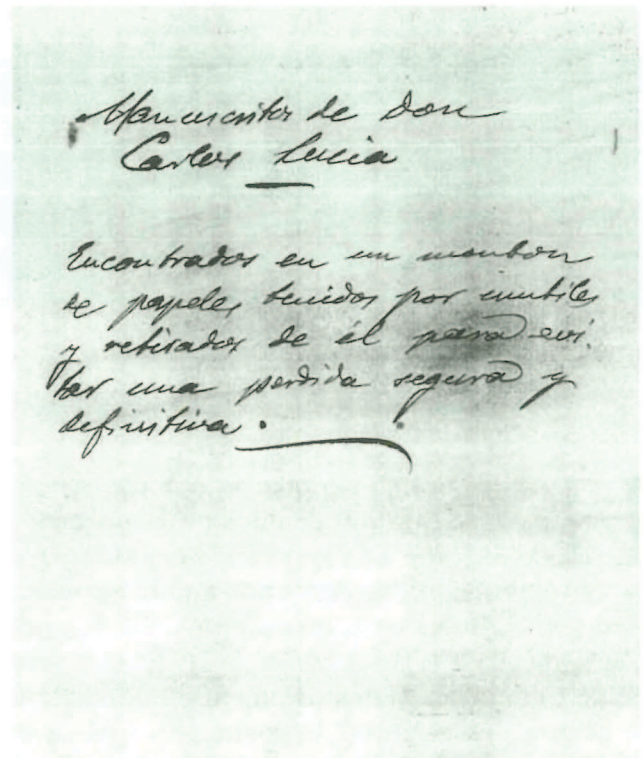 Manuscritos de Don
Carlos Lucia
Encontrados en un monton
de papeles tenidos por inutiles
y retirados de él para evi
tar una perdida segura y
definitiva.